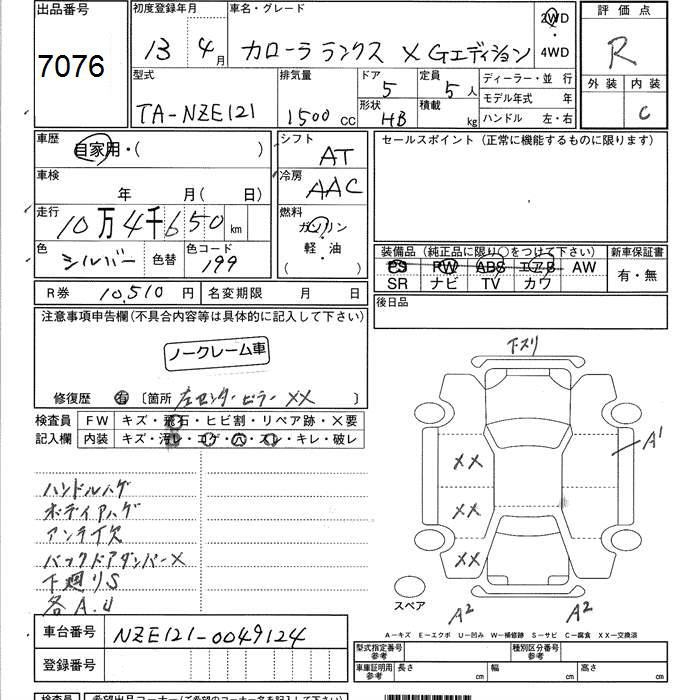 出品番号
7076
初度登録年月
13 4月
車名・グレード
カローラ ランクス X Gエディション
2WD
4WD
評価点
R
外装 内装
C
型式
TA-NZE121
排気量
1500 CC
ドア
5
定員
5 人
形状
HB
積載
kg
ディーラー・並行
モデル年式 年
ハンドル 左・右
車歴
自家用・( )
シフト
AT
車検
年 月(日)
冷房
AAC
走行
10万4千650 km
燃料
ガソリン
軽・油
( )
色
シルバー
色替
色コード
199
R券 10,510円
名変期限 月 日
セールスポイント(正常に機能するものに限ります)
装備品(純正品に限り○をつけて下さい)
PS PW ABS エアB AW
SR ナビ TV カワ
新車保証書
有・無
後日品
注意事項申告欄(不具合内容等は具体的に記入して下さい)
ノークレーム車
修復歴 有 〔箇所 左センターピラー XX 〕
検査員
記入欄
FW キズ・飛石・ヒビ割・リペア跡・X要
内装 キズ・汚レ・コゲ・穴・スレ・キレ・破レ
ハンドルハゲ
ボディアハゲ
アンテナ欠
バックドアダンパーX
下廻りS
各A.U
下スリ
A1
XX
XX
XX
スペア
A2
A2
A-キズ E-エクボ U-凹み W-補修跡 S-サビ C-腐食 XX-交換済
車台番号 NZE121-0049124
登録番号
型式指定番号
参考
種別区分番号
参考
車庫証明用
参考
長さ cm 幅 cm 高さ cm
検査員
希望出品コーナー(ご希望のコーナー名をご記入下さい)